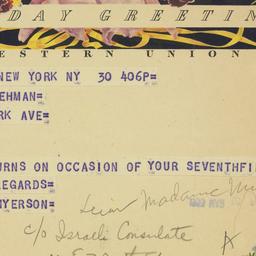 DAY GREETIN
ESTERN UNION
NEW YORK NY 30 406P=
EHMAN=
RK AVE=
URNS ON OCCASION OF YOUR SEVENTHFI
REGARDS=
NYERSON=
Madame
c/o Israeli Consulate